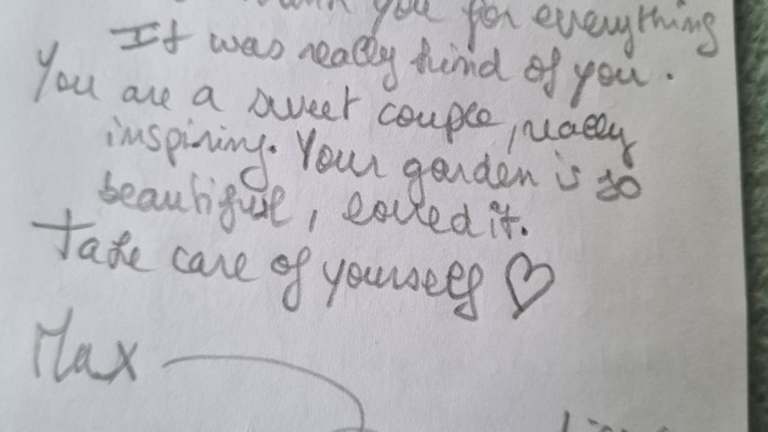 thank you for everything
It was really kind of you.
You are a sweet couple, really
inspiring. Your garden is so
beautiful, loved it.
Take care of yourself ♡
Max